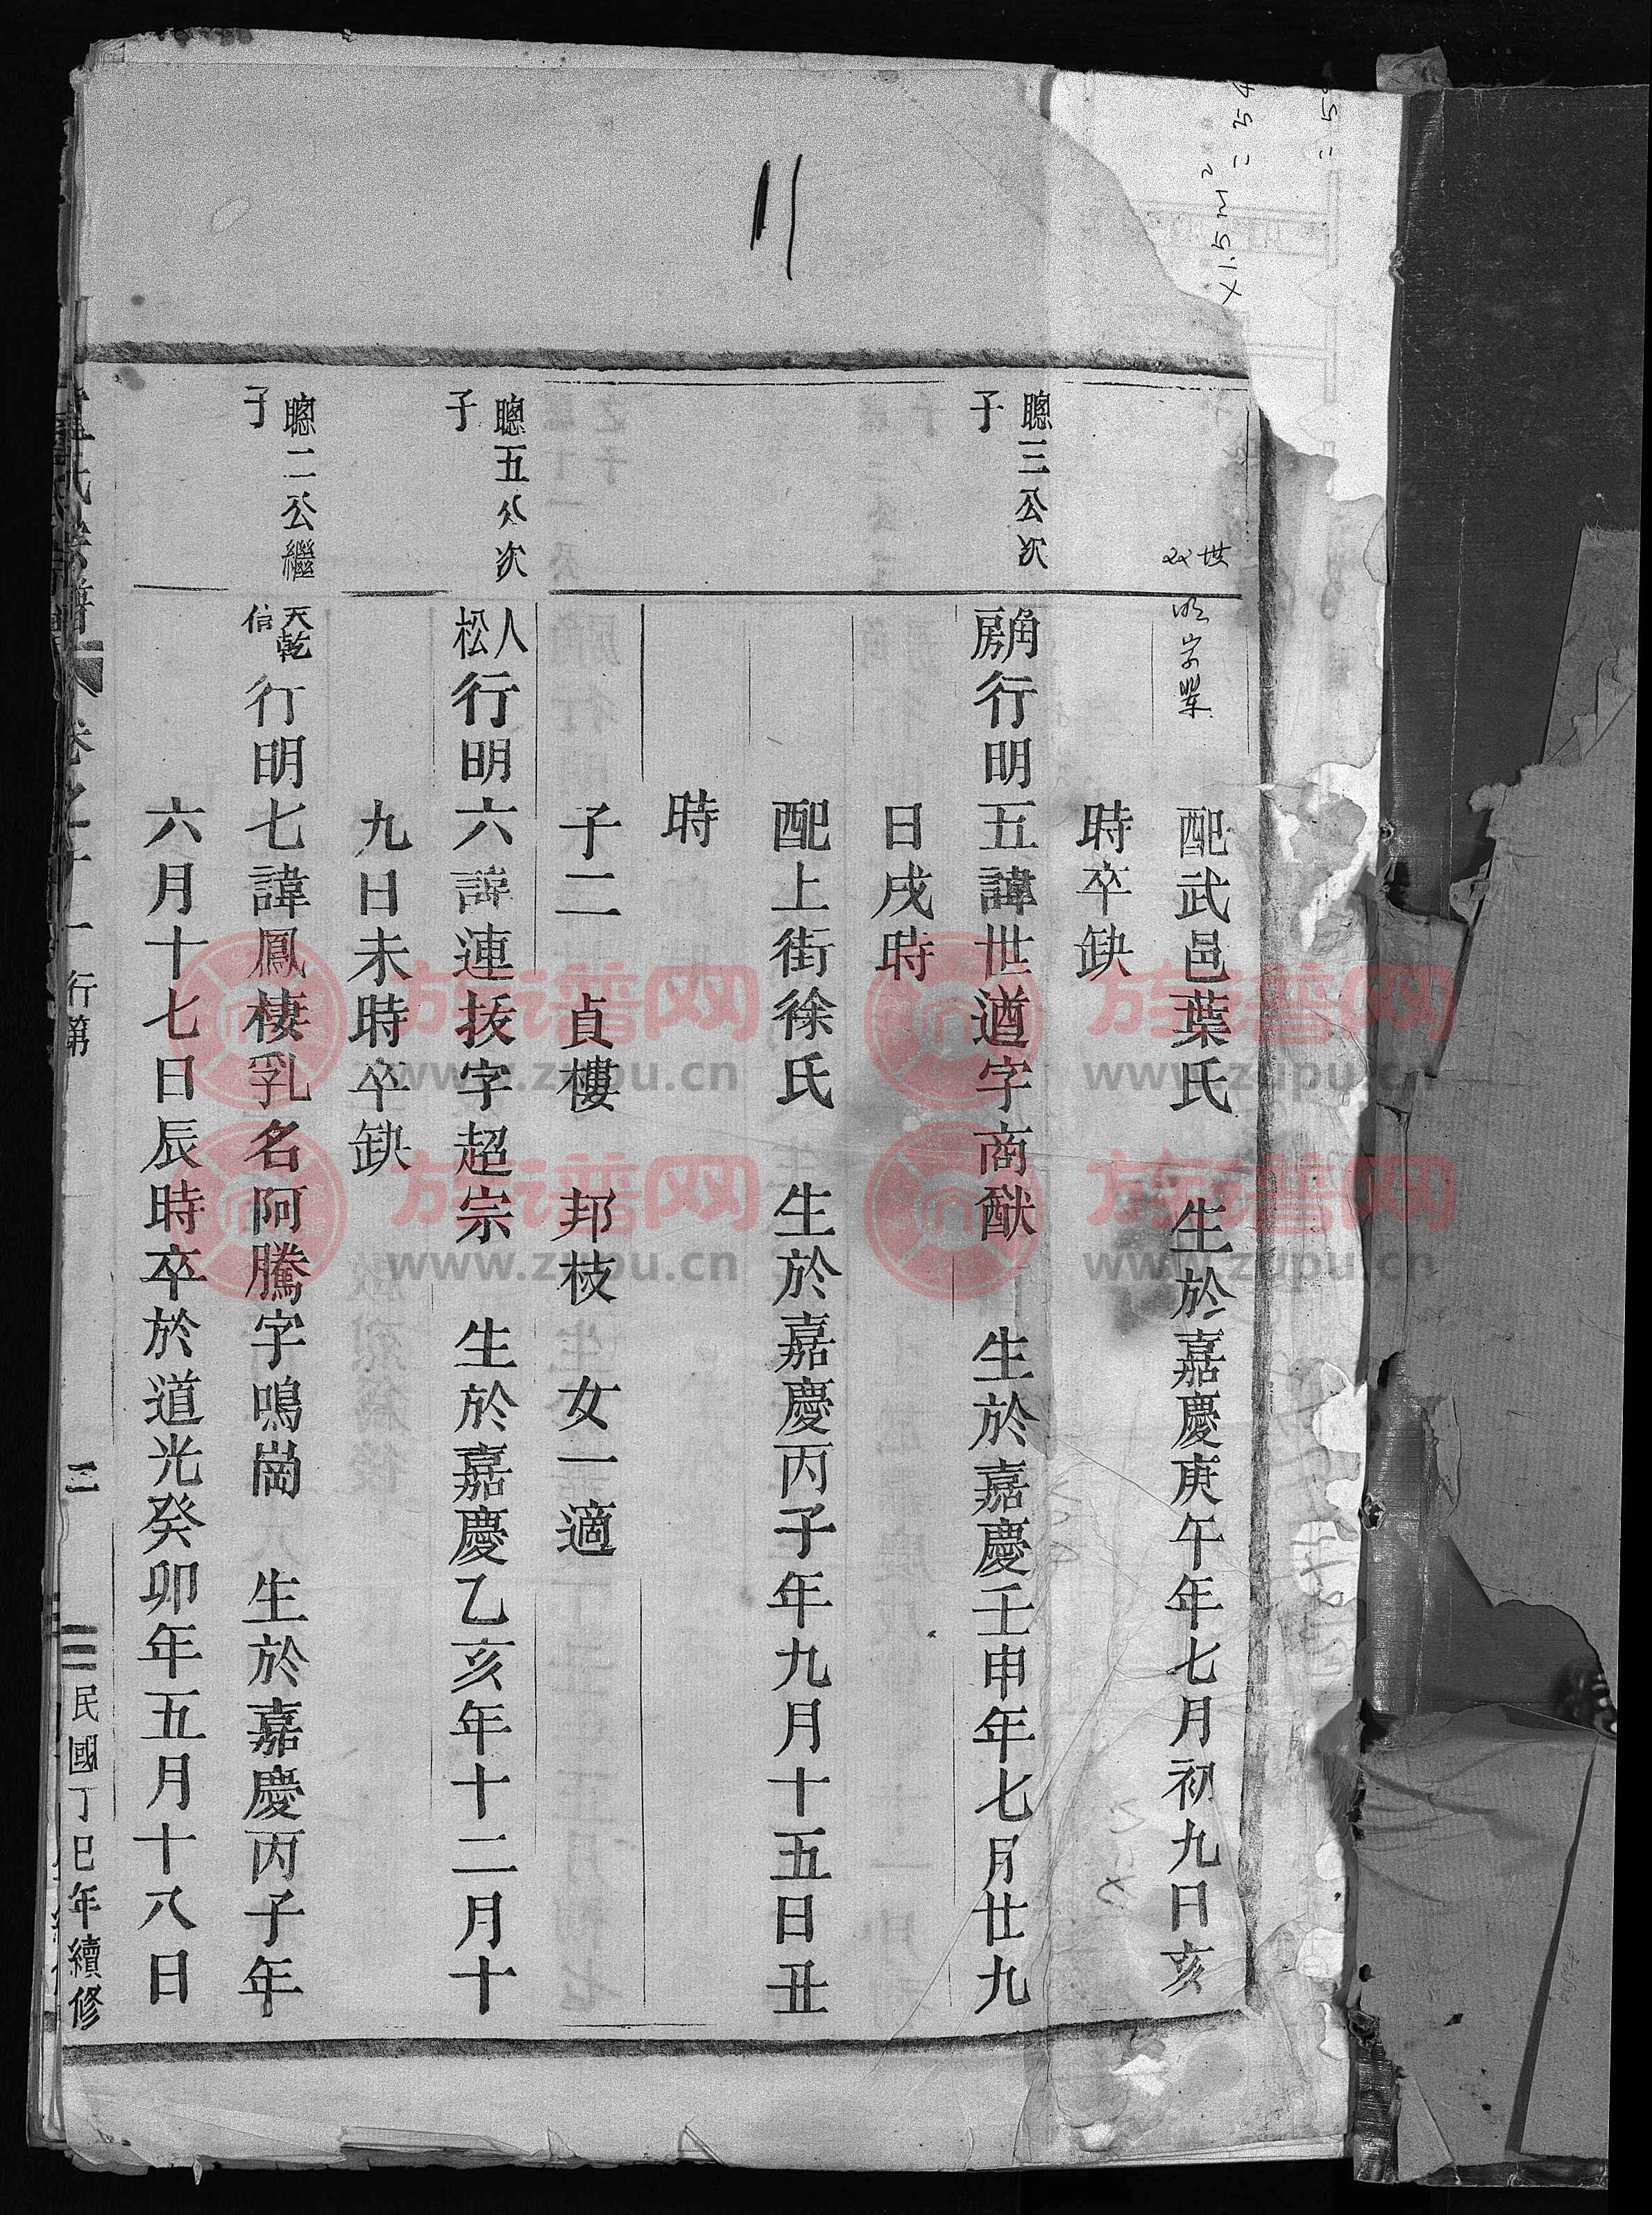 配武邑葉氏 生於嘉慶庚午年七月初九日亥
時卒缺
聰三公次
子
角房行明五諱世遒字商猷 生於嘉慶壬申年七月廿九
日戌時
配上街徐氏 生於嘉慶丙子年九月十五日丑
時
子二 貞樓 邦枝 女一適
聰五公次
子
人松行明六諱連拔字超宗 生於嘉慶乙亥年十二月十
九日未時卒缺
聰二公繼
子
天乾信行明七諱鳳棲乳名阿騰字鳴崗 生於嘉慶丙子年
六月十七日辰時卒於道光癸卯年五月十八日
行第
三
民國丁巳年續修
11
族谱网
www.zupu.cn
族谱网
www.zupu.cn
族谱网
www.zupu.cn
族谱网
www.zupu.cn